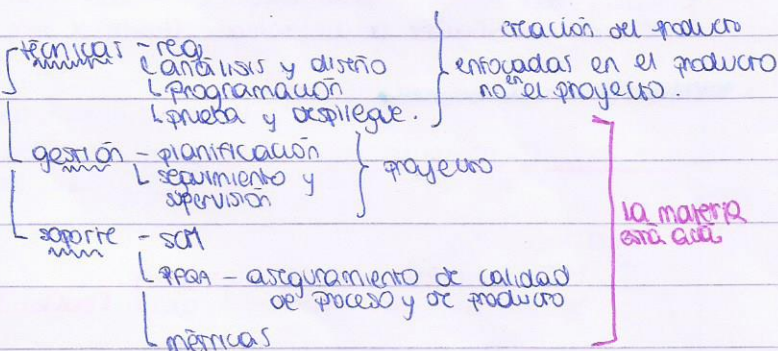 técnicas - req
análisis y diseño
programación
prueba y despliegue.
creación del producto
enfocadas en el producto
no en el proyecto.
gestión - planificación
seguimiento y
supervisión
proyecto
soporte - SCM
PPQA - aseguramiento de calidad
de proceso y de producto
métricas
la materia
está acá